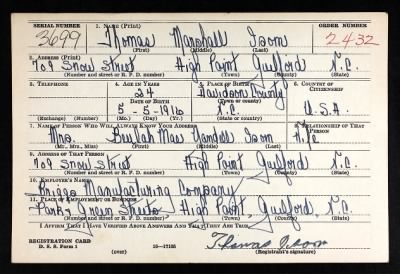 SERIAL NUMBER 1. NAME (Print) ORDER NUMBER
3699 Thomas Marshall Isom 2432
(First) (Middle) (Last)
2. ADDRESS (Print)
709 Snow Street High Point Guilford N.C.
(Number and street or R. F. D. number) (Town) (County) (State)
3. TELEPHONE 4. AGE IN YEARS 5. PLACE OF BIRTH 6. COUNTRY OF CITIZENSHIP
24 Davidson County
DATE OF BIRTH (Town or county)
5-5-1916 N.C. U.S.A.
(Exchange) (Number) (Mo.) (Day) (Yr.) (State or country)
7. NAME OF PERSON WHO WILL ALWAYS KNOW YOUR ADDRESS 8. RELATIONSHIP OF THAT PERSON
Mrs. Mae Isom
(Mr., Mrs., Miss) (First) (Middle) (Last)
9. ADDRESS OF THAT PERSON
709 Snow Street High Point, Guilford, N.C.
(Number and street or R. F. D. number) (Town) (County) (State)
10. EMPLOYER'S NAME
Briggs Manufacturing Company
11. PLACE OF EMPLOYMENT OR BUSINESS
Park & Green Streets, High Point, Guilford, N.C.
(Number and street or R. F. D. number) (Town) (County) (State)
I AFFIRM THAT I HAVE VERIFIED ABOVE ANSWERS AND THAT THEY ARE TRUE.
REGISTRATION CARD
D. S. S. Form 1 (over) 16-17105 Thomas Isom
(Registrant's signature)